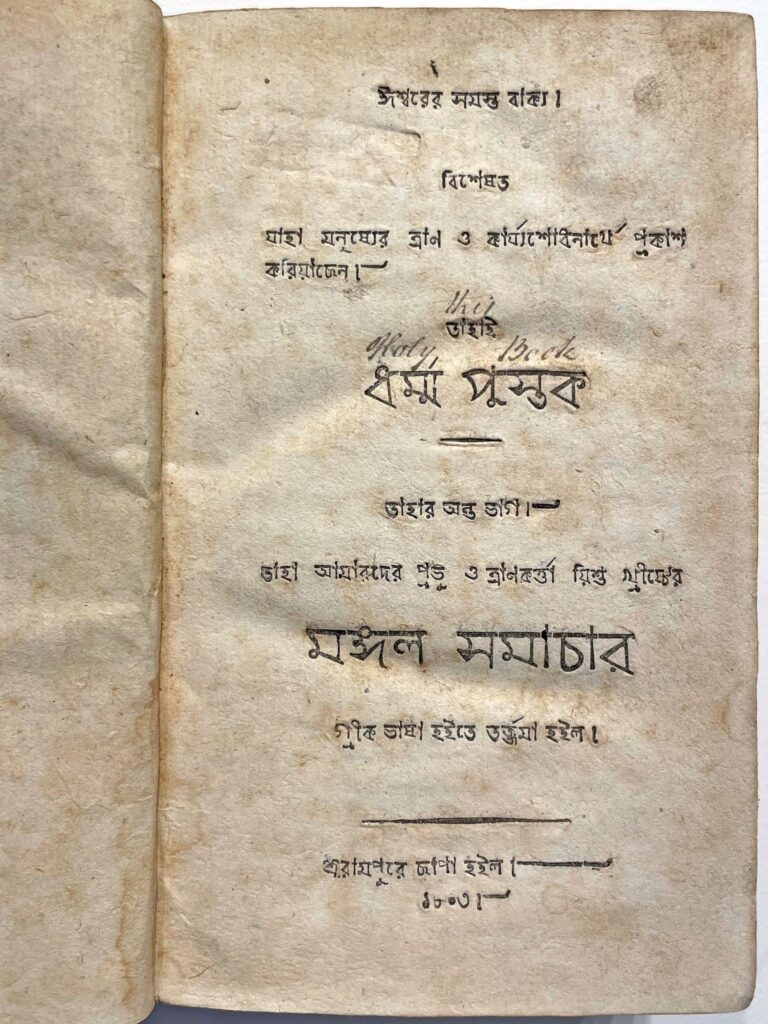 ঈশ্বরের সমস্ত বাক্য।
বিশেষত
যাহা মনুষ্যের ত্রাণ ও কার্য্যশোধনার্থে প্রকাশ
করিয়াছেন।—
this
তাহাই
Holy, Book
ধর্ম্ম পুস্তক
তাহার অন্ত ভাগ।—
তাহা আমারদের প্রভু ও ত্রাণকর্ত্তা য়িশু খ্রীষ্টের
মঙ্গল সমাচার
গ্রীক ভাষা হইতে তর্জ্জমা হইল।
শ্রীরামপুরে ছাপা হইল।—
১৮০৩।—